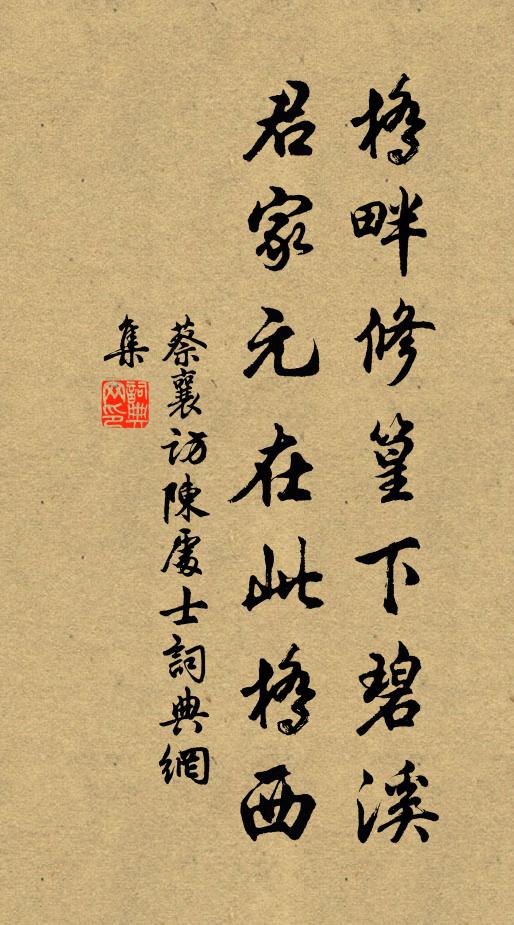 橋畔修篁下碧溪
君家元在此橋西
蔡襄訪陳處士詞典網
集
詞典
网印